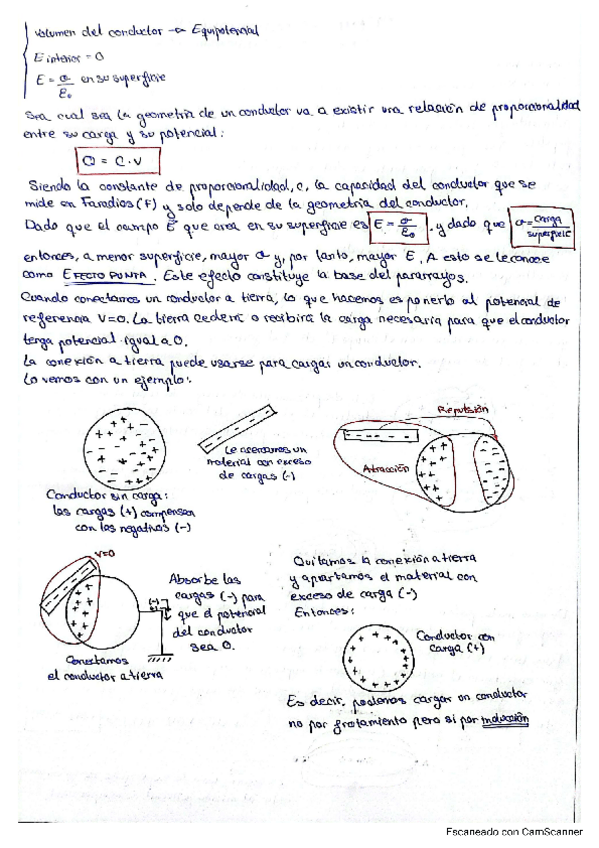 volumen del conductor → Equipotencial
E interior = 0
E = σ/ε₀ en su superficie
Sea cual sea la geometría de un conductor va a existir una relación de proporcionalidad
entre su carga y su potencial:
Q = C · V
Siendo la constante de proporcionalidad, c, la capacidad del conductor que se
mide en Faradios (F) y solo depende de la geometría del conductor.
Dado que el campo E que crea en su superficie es E = σ/ε₀, y dado que σ = carga/superficie
entonces, a menor superficie, mayor σ y, por tanto, mayor E. A esto se le conoce
como EFECTO PUNTA. Este efecto constituye la base del pararrayos.
Cuando conectamos un conductor a tierra, lo que hacemos es ponerlo al potencial de
referencia V=0. La tierra cederá o recibirá la carga necesaria para que el conductor
tenga potencial igual a 0.
La conexión a tierra puede usarse para cargar un conductor.
Lo vemos con un ejemplo:
Repulsión
Le acercamos un
material con exceso
de cargas (-)
Atracción
Conductor sin carga:
las cargas (+) compensan
con las negativas (-)
V=0
(-)
Absorbe las
cargas (-) para
que el potencial
del conductor
sea 0.
Conectamos
el conductor a tierra
Quitamos la conexión a tierra
y apartamos el material con
exceso de carga (-)
Entonces:
Conductor con
carga (+)
Es decir, podemos cargar un conductor
no por frotamiento pero sí por inducción
Escaneado con CamScanner